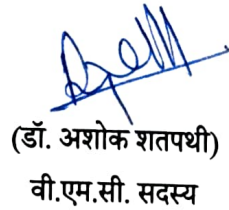 (डॉ. अशोक शतपथी)
वी.एम.सी. सदस्य